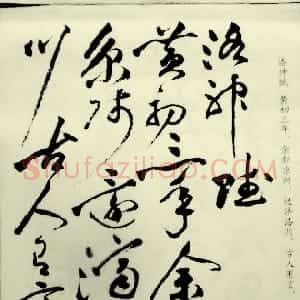 洛神賦 黄初三年，余朝京師，還濟洛川。古人有言，
洛神賦
黄初三年余
京師還濟
川古人有
shufaziliao.com